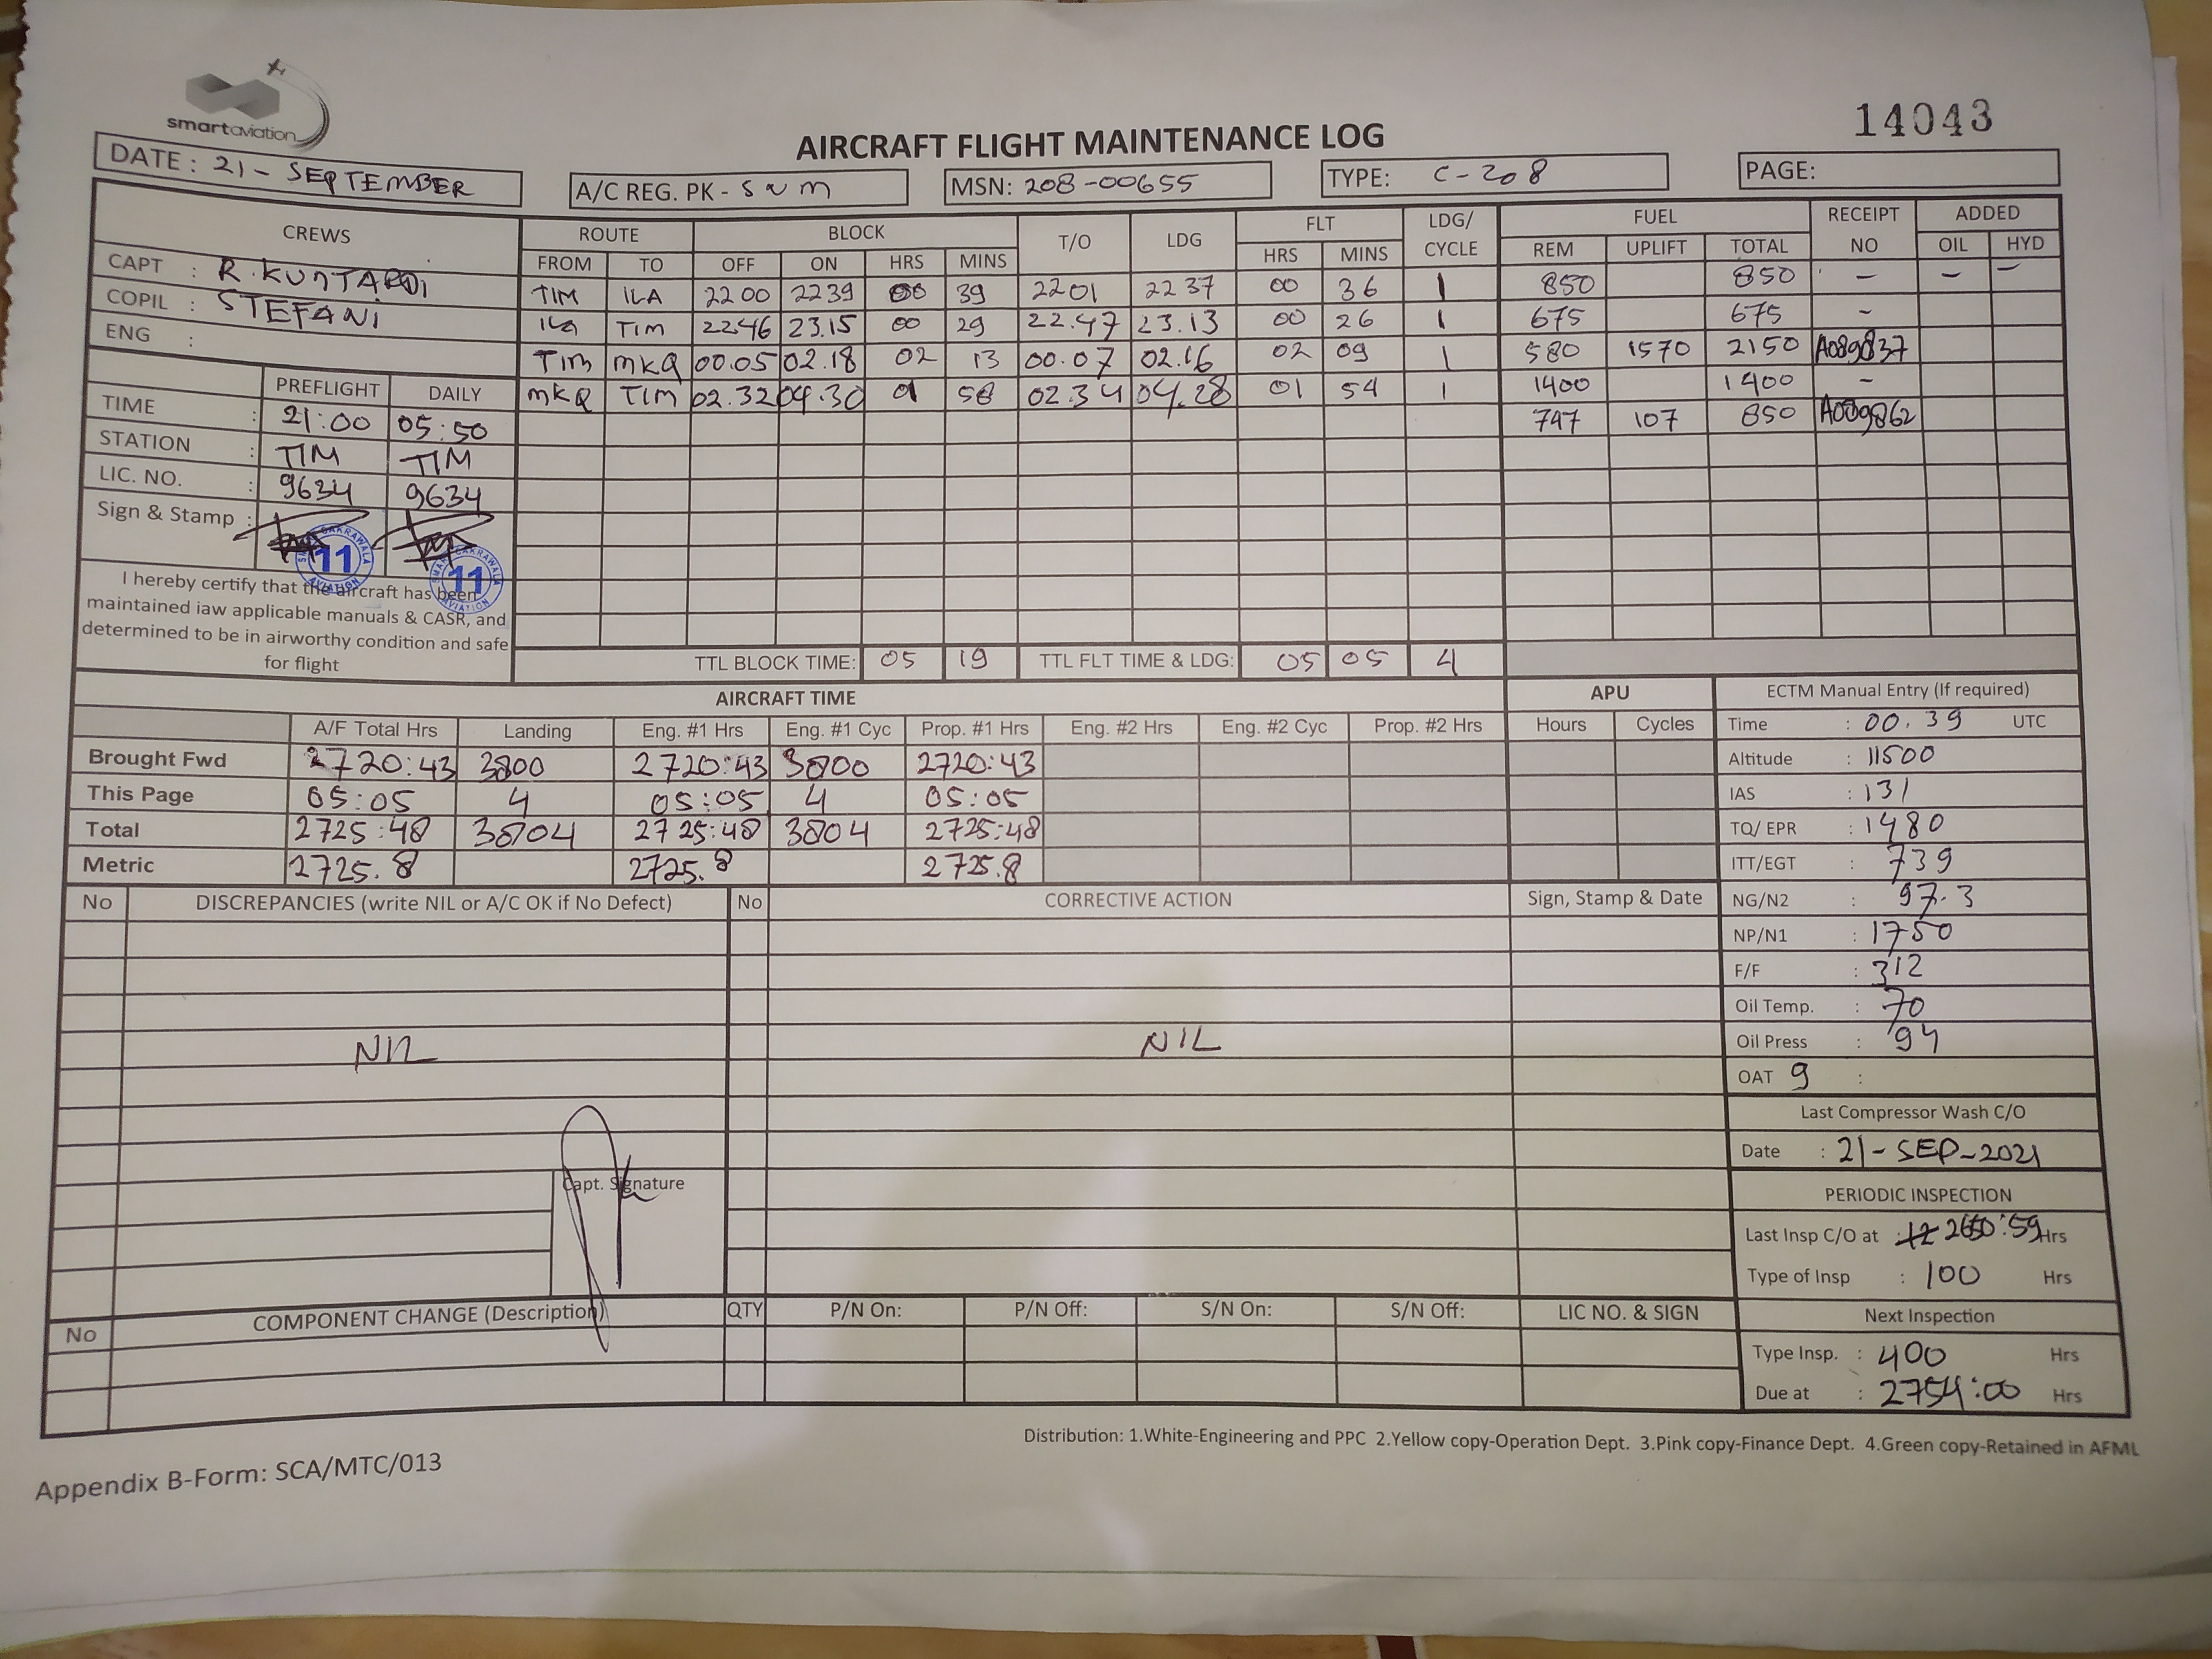 smartaviation
14043
AIRCRAFT FLIGHT MAINTENANCE LOG
DATE : 21 - SEPTEMBER
A/C REG. PK - S N M
MSN: 208-00655
TYPE: C-208
PAGE:
CREWS ROUTE BLOCK T/O LDG FLT LDG/ CYCLE FUEL RECEIPT NO ADDED
FROM TO OFF ON HRS MINS HRS MINS REM UPLIFT TOTAL OIL HYD
CAPT : R. KUNTARDI
COPIL : STEFANI
ENG :
TIM ILA 2200 2239 00 39 2201 2237 00 36 1 850 850 - - -
ILA TIM 2246 23.15 00 29 22.47 23.13 00 26 1 675 675 -
TIM MKQ 00.05 02.18 02 13 00.07 02.16 02 09 1 580 1570 2150 A089837
MKQ TIM 02.32 04.30 01 58 02.34 04.28 01 54 1 1400 1400 -
747 107 850 A089862
PREFLIGHT DAILY
TIME : 21:00 05:50
STATION : TIM TIM
LIC. NO. : 9634 9634
Sign & Stamp :
11 11
I hereby certify that the aircraft has been
maintained iaw applicable manuals & CASR, and
determined to be in airworthy condition and safe
for flight
TTL BLOCK TIME: 05 19 TTL FLT TIME & LDG: 05 05 4
AIRCRAFT TIME APU
A/F Total Hrs Landing Eng. #1 Hrs Eng. #1 Cyc Prop. #1 Hrs Eng. #2 Hrs Eng. #2 Cyc Prop. #2 Hrs Hours Cycles
Brought Fwd 2720:43 3800 2720:43 3800 2720:43
This Page 05:05 4 05:05 4 05:05
Total 2725:48 3804 2725:48 3804 2725:48
Metric 2725.8 2725.8 2725.8
ECTM Manual Entry (If required)
Time : 00.39 UTC
Altitude : 11500
IAS : 131
TQ/ EPR : 1480
ITT/EGT : 739
NG/N2 : 97.3
NP/N1 : 1750
F/F : 312
Oil Temp. : 70
Oil Press : 94
OAT 9 :
Last Compressor Wash C/O
Date : 21-SEP-2021
PERIODIC INSPECTION
Last Insp C/O at : 2650:59 Hrs
Type of Insp : 100 Hrs
Next Inspection
Type Insp. : 400 Hrs
Due at : 2754:00 Hrs
No DISCREPANCIES (write NIL or A/C OK if No Defect) No CORRECTIVE ACTION Sign, Stamp & Date
NIL NIL
Capt. Signature
No COMPONENT CHANGE (Description) QTY P/N On: P/N Off: S/N On: S/N Off: LIC NO. & SIGN
Distribution: 1.White-Engineering and PPC 2.Yellow copy-Operation Dept. 3.Pink copy-Finance Dept. 4.Green copy-Retained in AFML
Appendix B-Form: SCA/MTC/013